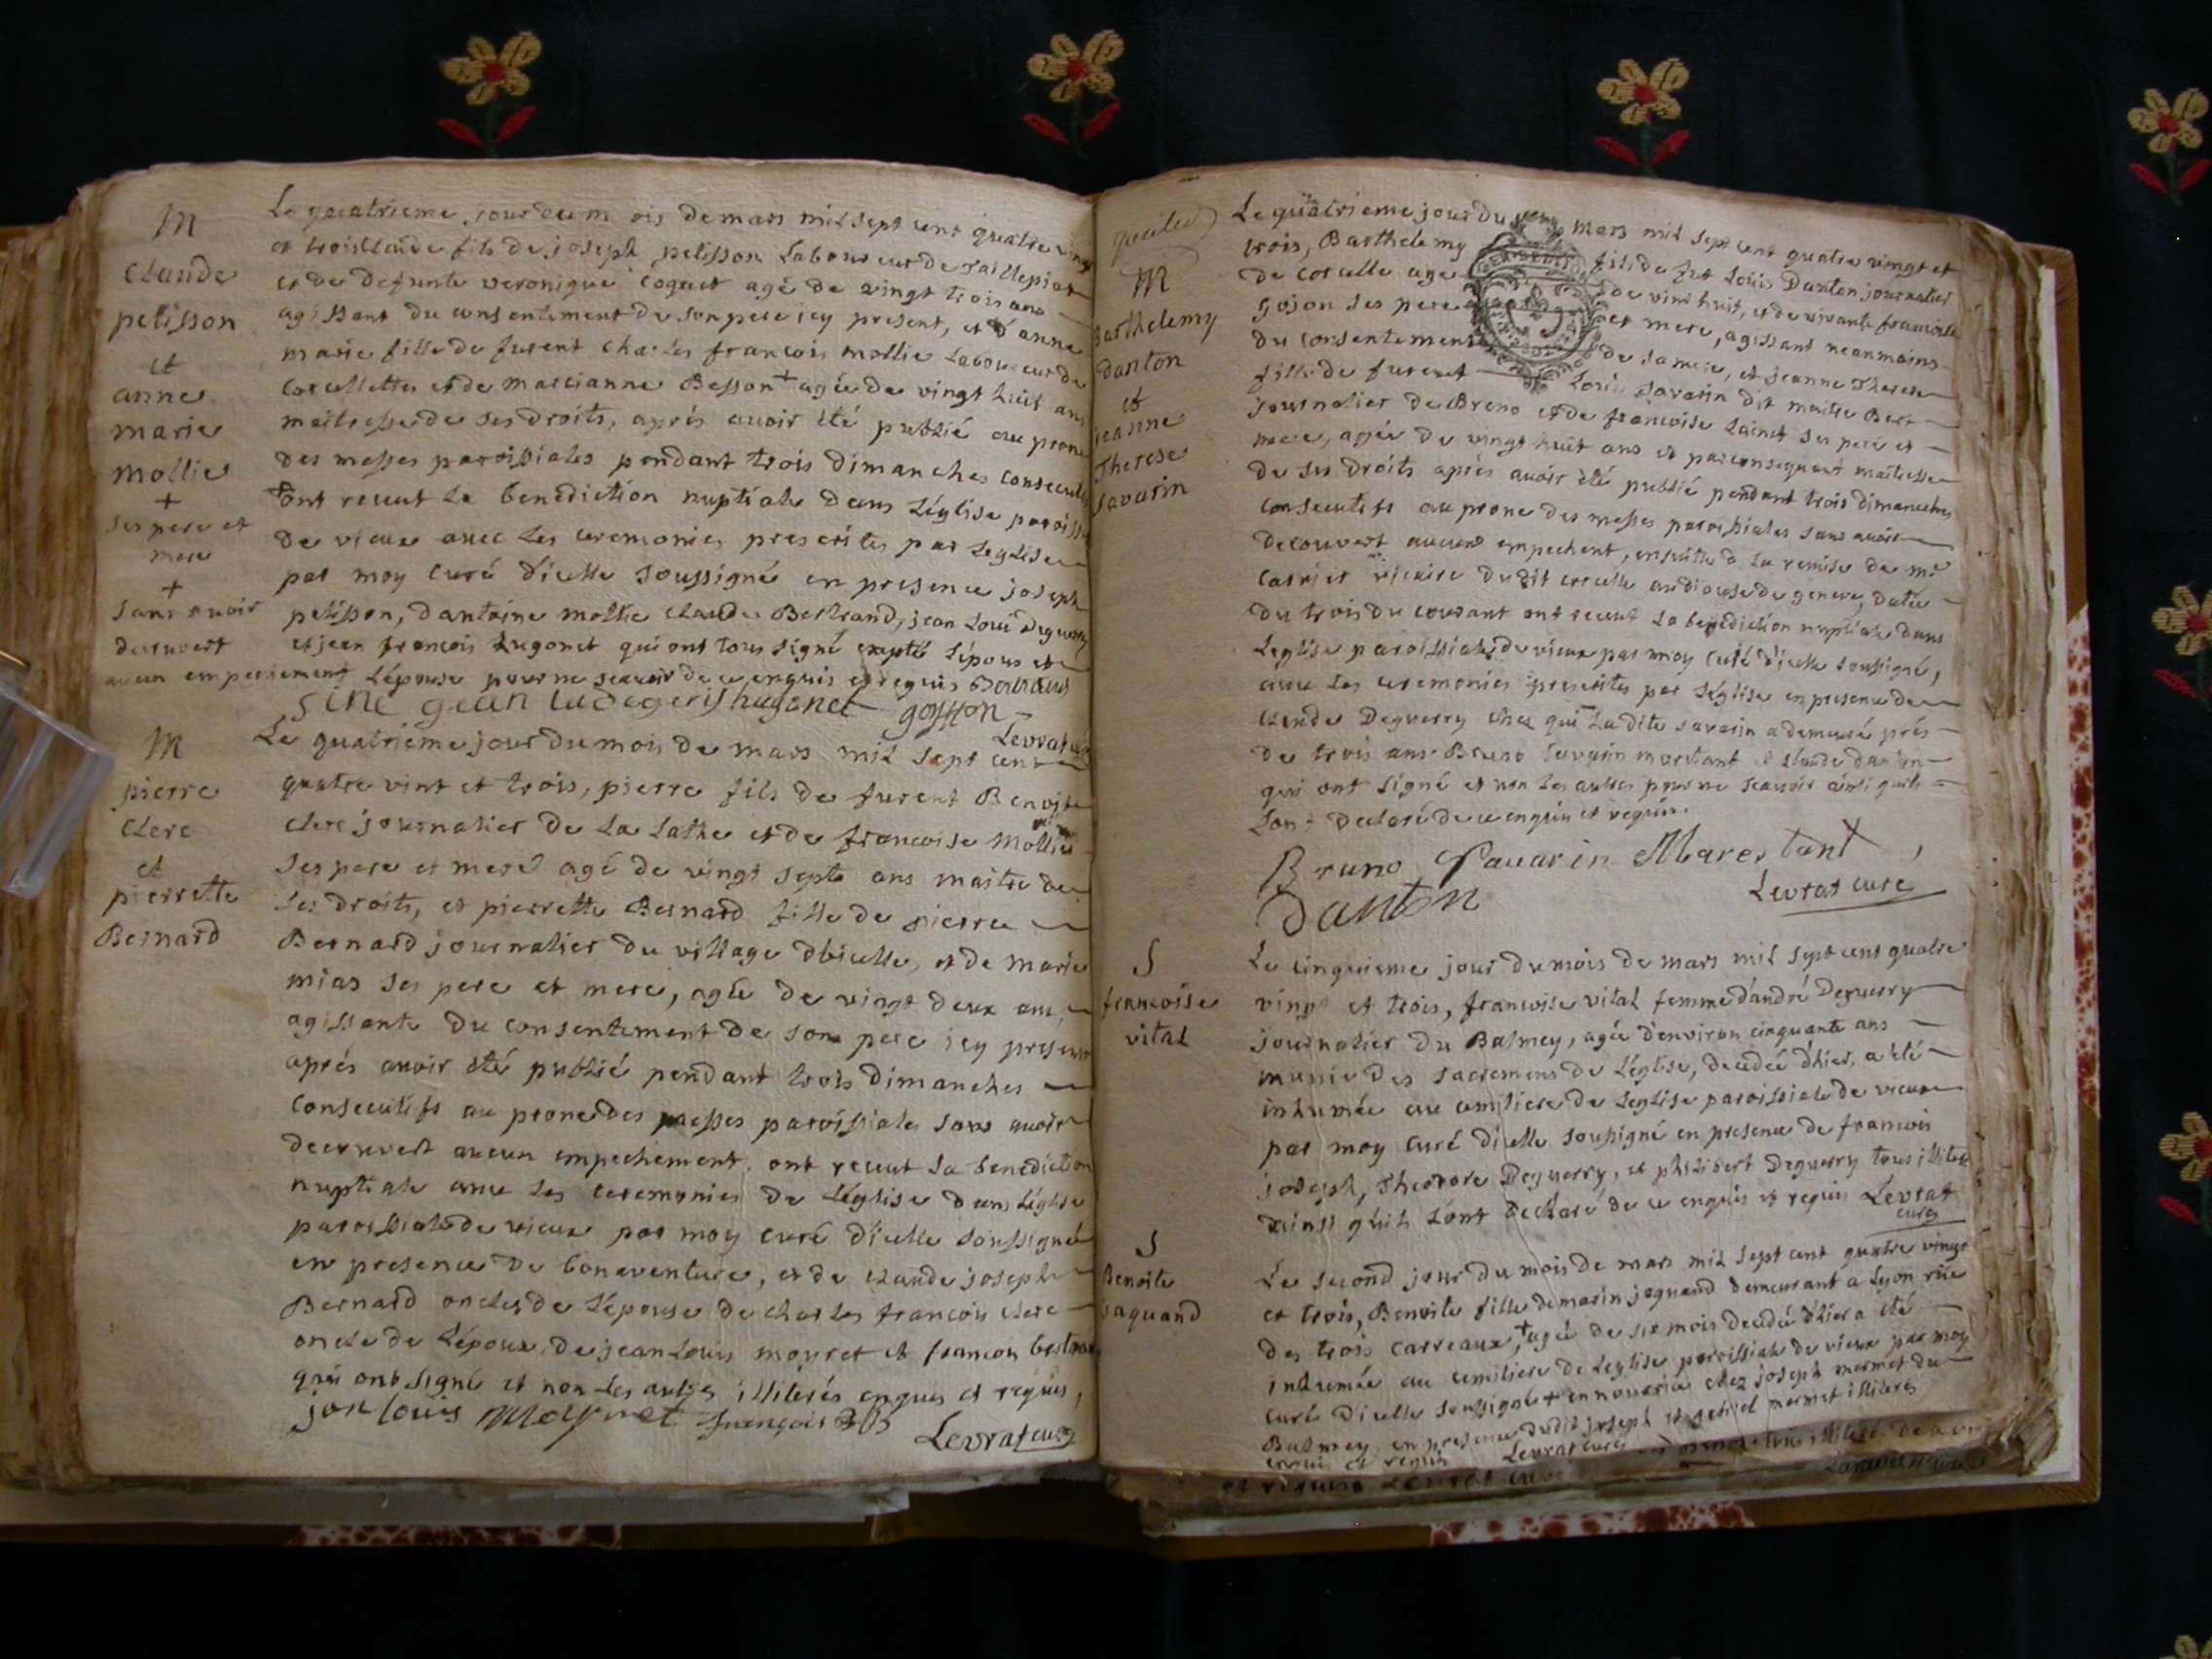 M
Claude
pelisson
et
anne
marie
mollie
+
ses pere et
mere
+
sans avoir
decouvert
aucun empechement
Le quatrieme jour du m ois de mars mil sept cent quatre vingt
et trois Claude fils de joseph pelisson Laboureur de
et de defunte veronique coquet agé de vingt trois ans
agissant du consentement de son pere icy present, et d'anne
marie fille de furent charles francois mollie Laboureur de
corcellettes et de marcianne Besson + agée de vingt huit ans
maitresse de ses droits, aprés avoir été publié au prone
des messes paroissiales pendant trois dimanches consecutifs
+ ont receut la benediction nuptiale dans L'église paroissiale
de vieux avec les ceremonies prescrites par Leglise
par moy curé d'icelle soussigné en presence joseph
pelisson, d'antoine mollie claude Bertrand, jean Loui Deguerry
et jean francois hugonet qui ont tous signé excepté L'époux et
L'épouse pour ne scavoir de ce enquis et requis Bertrand
gean hugonet goisson
Levrat curé
M
pierre
clerc
et
pierrette
Bernard
Le quatrieme jour du mois de mars mil sept cent
quatre vint et trois, pierre fils de furent Benoite
clerc journalier de La Lathe et de francoise Mollie
ses pere et mere agé de vingt septe ans maitre de
ses droits, et pierrette Bernard fille de pierre
Bernard journalier du village d'icelle, et de marie
mias ses pere et mere, agée de vingt deux ans
agissante du consentement de son pere icy present
aprés avoir été publié pendant trois dimanches
consecutifs au prone des messes paroissiales sans avoir
decouvert aucun empechement, ont receut la benediction
nuptiale avec les ceremonies de L'église dans L'église
paroissiale de vieux par moy curé d'icelle soussigné
en presence de bonaventure, et de claude joseph
Bernard oncles de L'épouse de charles francois clerc
oncle de L'époux, de jean Louis moyret et francois bertrand
qui ont signé et non les autres illiterés enquis et requis,
jan louis Moyret françois
Levrat curé
M
Barthelemy
danton
et
jeanne
Therese
savarin
Le quatrieme jour du mars mil sept cent quatre vingt et
trois, Barthelemy fils de fut Louis Danton journalier
de corcelle age de vint huit, et de vivante francoise
Gojon ses pere et mere, agissant neanmoins
du consentement de sa mere, et jeanne Therese
fille de furent Louis savarin dit maitre Bert
journalier de Breno et de francoise Lainet ses pere et
mere, agée de vingt huit ans et par consequent maitresse
de ses droits aprés avoir été publié pendant trois dimanches
consecutifs au prone des messes paroissiales sans avoir
decouvert aucun empechent, ensuitte d la remise de mr
vicaire dudit corcelle au diocese de geneve, datée
du trois du courant ont receut la benediction nuptiale dans
Leglise paroissiale de vieux par moy curé d'icelle soussigné,
avec les ceremonies prescrites par L'église en presence de
claude Deguerry chez qui Ladite savarin a demeuré prés
de trois ans Bruno savarin marestant et claude danton
qui ont signé et non les autres pour ne scavoir ainsi quils
Lont declaré de ce enquis et requis.
Bruno Savarin Marestant
Danton
Levrat curé
S
francoise
vital
Le cinquieme jour du mois de mars mil sept cent quatre
vingt et trois, francoise vital femme d'andré Deguerry
journalier du Balmey, agée d'environ cinquante ans
munie des sacremens de L'église, decedée d'hier, a été
inhumée au cemitiere de L'eglise paroissiale de vieux
par moy curé d'icelle soussigné en presence de francois
joseph, Theodore Deguerry, et philibert Deguerry tous illiteres
ainsi quils lont declaré de ce enquis et requis Levrat
curé
S
Benoite
jaquand
Le second jour du mois de mars mil sept cent quatre vingt
et trois, Benoite fille de marin jaquand demeurant a Lyon rüe
des trois carreaux, + agée de six mois decedé d'hier a été
inhumée au cemitiere de Leglise paroissiale de vieux par moy
curé d'icelle soussigné + en nourrice chez joseph mermet du
Balmey, en presence dudit joseph et mermet illiterés
enquis et requis Levrat curé
et requis Levrat curé